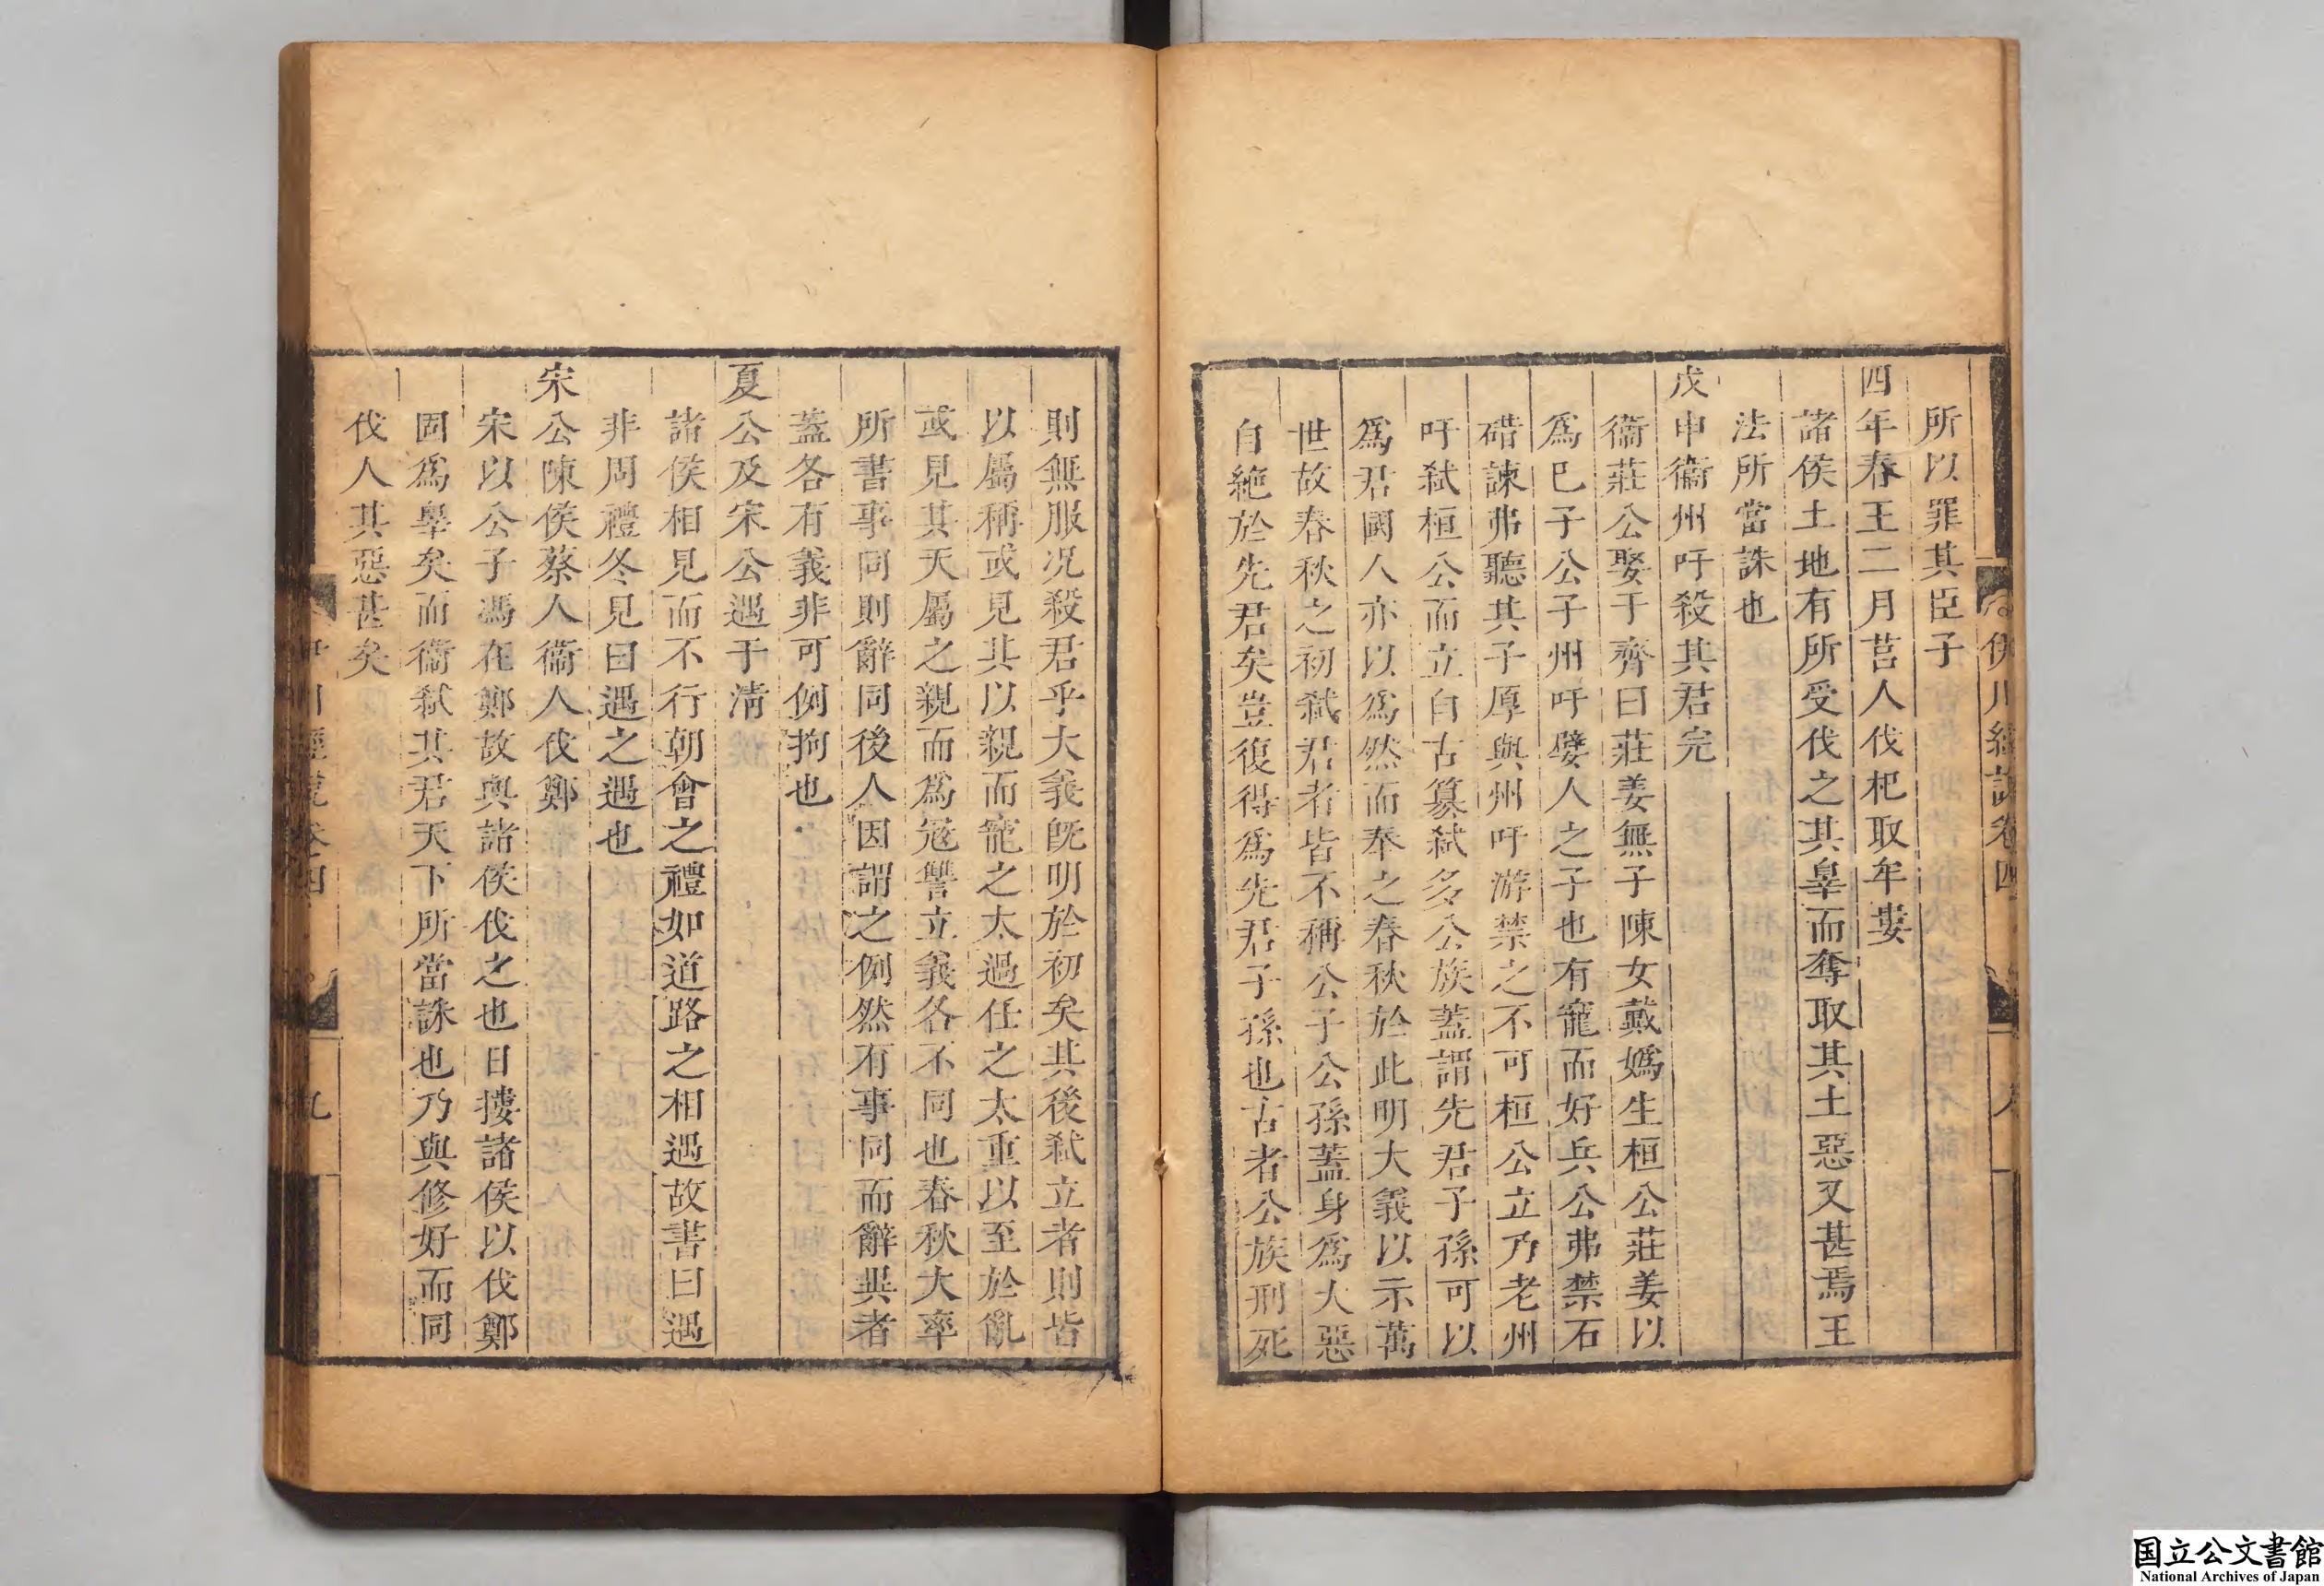 伊川經說卷四
所以罪其臣子
四年春王二月莒人伐杞取牟婁
諸侯土地有所受伐之其辠而奪取其土惡又甚焉王
法所當誅也
戊申衞州吁殺其君完
衞莊公娶于齊曰莊姜無子陳女戴媯生桓公莊姜以
爲巳子公子州吁嬖人之子也有寵而好兵公弗禁石
碏諫弗聽其子厚與州吁游禁之不可桓公立乃老州
吁弑桓公而立自古篡弑多公族蓋謂先君子孫可以
爲君國人亦以爲然而奉之春秋於此明大義以示萬
世故春秋之初弑君者皆不稱公子公孫蓋身爲大惡
自絶於先君矣豈復得爲先君子孫也古者公族刑死
則無服况殺君乎大義旣明於初矣其後弑立者則皆
以屬稱或見其以親而寵之太過任之太重以至於亂
或見其天屬之親而爲寇讐立義各不同也春秋大率
所書事同則辭同後人因謂之例然有事同而辭異者
蓋各有義非可例拘也
夏公及宋公遇于淸
諸侯相見而不行朝會之禮如道路之相遇故書曰遇
非周禮冬見曰遇之遇也
宋公陳侯蔡人衞人伐鄭
宋以公子馮在鄭故與諸侯伐之也曰摟諸侯以伐鄭
固爲辠矣而衞弑其君天下所當誅也乃與修好而同
伐人其惡甚矣
伊川經說卷四
九
国立公文書館
National Archives of Japan